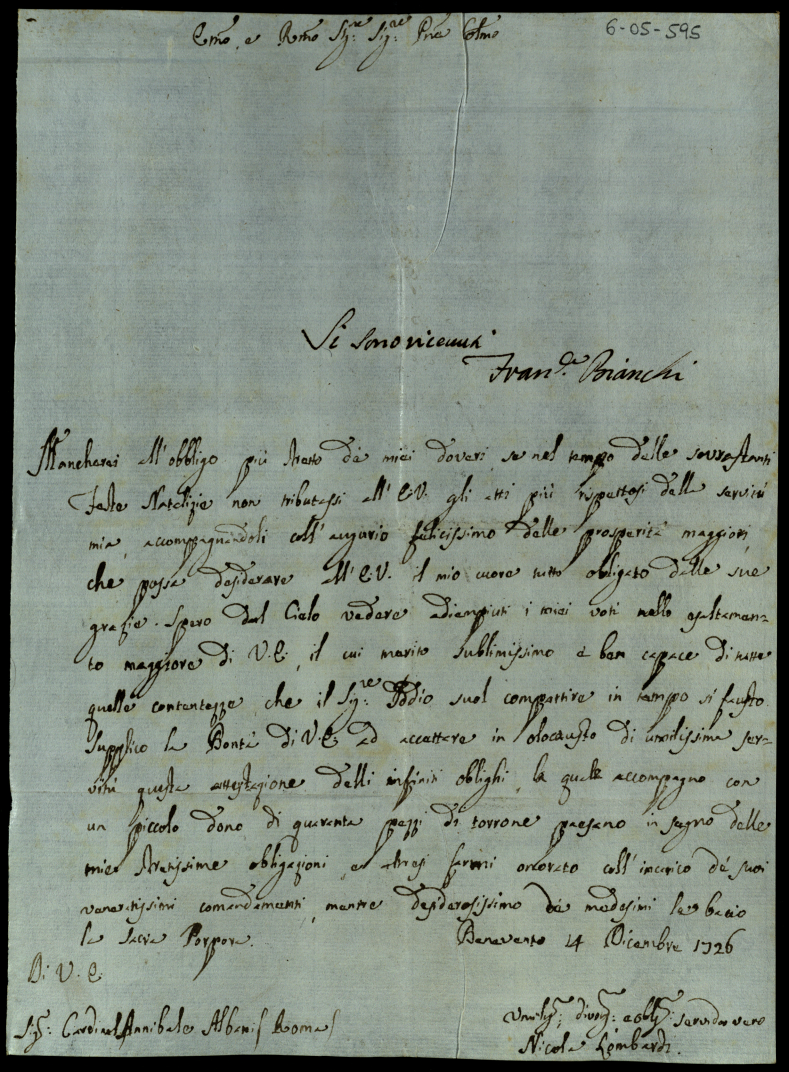 6-05-595
Emo, e Rmo Sig:re Sig:re Pne Colmo
Si sono ricevuti
Fran.do Bianchi
Mancherei all'obbligo più stretto de miei doveri, se nel tempo delle sovrastanti
Feste Natalizie non tributassi all'E.V. gli atti più rispettosi della servitù
mia, accompagnandoli coll'augurio felicissimo delle prosperità maggiori,
che possa desiderare all'E.V. il mio cuore tutto obligato dalle sue
grazie. Spero dal Cielo vedere adempiuti i miei voti nello esaltamen=
to maggiore di V.E., il cui merito sublimissimo è ben capace di tutte
quelle contentezze, che il Sig:re Iddio suol compartire in tempo sì fausto.
Supplico la Bontà di V.E. ad accettare in olocausto di umilissima ser=
vitù questa attestazione delli infiniti oblighi, la quale accompagno con
un piccolo dono di quaranta pezzi di torrone paesano in segno delle
mie stretissime obligazioni, e altresì farmi onorato coll'incarico de' suoi
veneratissimi comandamenti, mentre desiderosissimo de' medesimi le bacio
la Sacra Porpora. Benevento 14 Dicembre 1726
Di V.E.
Sig: Cardinal Annibale Albani / Roma /
Umilis: divotis: e obligs: servidor vero
Nicola Lombardi.